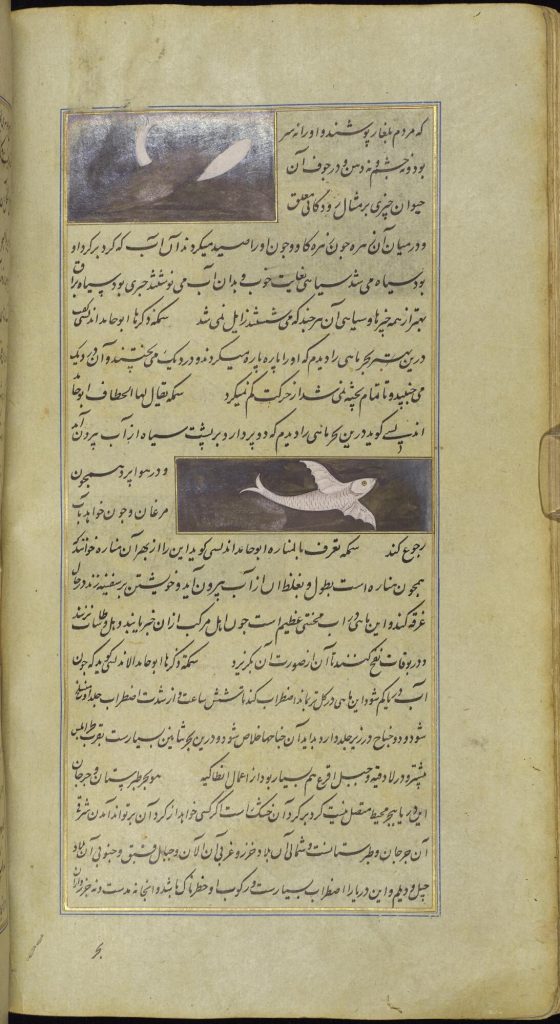 که مردم بلغار پوشند و او را نه سر
بود و نه چشم و نه دهن و در جوف آن
حیوان چیزی بر مثال رودگانی معلق
و در میان آن زهره چون زهره گاو و چون او را صید میکردند آن آب که گرد بر گرد او
بود سیاه می شد سیاهی بغایت خوب و بدان آب می نوشتند حبری بود سیاه براق
بهتر از همه حبرها و سیاهی آن هر چند که می شستند زایل نمی شد سمکة ذکرها ابو حامد اندلسی گفت
درین بحر ماهی را دیدم که او را پاره پاره میکردند و در دیک می پختند و آن در دیک
می جنبید و تا تمام پخته نمی شد از حرکت کم نمیکرد سمکة یقال لها الخطاف ابو حامد
اندلسی گوید درین بحر ماهی را دیدم که دو پر دارد بر پشت سیاه از آب بیرون آید
و در هوا پرد همچون
مرغان و چون خواهد بآب
رجوع کند سمکة تعرف بالمناره ابو حامد اندلسی گوید این را از بهر آن مناره خوانند که
همچون مناره است بطول و بغلظ از آب بیرون آید و خویشتن بر سفینه زند در حال
غرقه کند و این ماهی در آب محنتی عظیم است چون اهل مرکب از آن خبر یابند دهل و طاسات بزنند
و در بوقات نفخ کنند تا آن از صوت آن بگریزد سمکة ذکرها ابو حامد الاندلسی گوید که چون
آب دریا کم شود این ماهی در گل تر بماند اضطراب کند تا شش ساعت و از شدت اضطراب جلد او منسلخ
شود و دو جناح در زیر جلد دارد پدید آید آن جناحها خلاص شود و درین بحر شاهین بسیارست بقرب طرابلس
بیشتر و در لادقیه و جبل اقرع هم بسیار بود از اعمال انطاکیه هو بحر طبرستان و جرجان
این دریا ببحر محیط متصل نیست گرد بر گرد آن خشک است اگر کسی خواهد از گرد آن بر تواند آمدن شرقی
آن جرجان و طبرستانست و شمالی آن بلاد خزر و غربی آن الان و جبال قبق و جنوبی آن بلاد
جیل و دیلم و این دریا را اضطراب بسیارست و رکوب او خطرناک باشد و آنجا نه مدست و نه جزر و آن
بحر